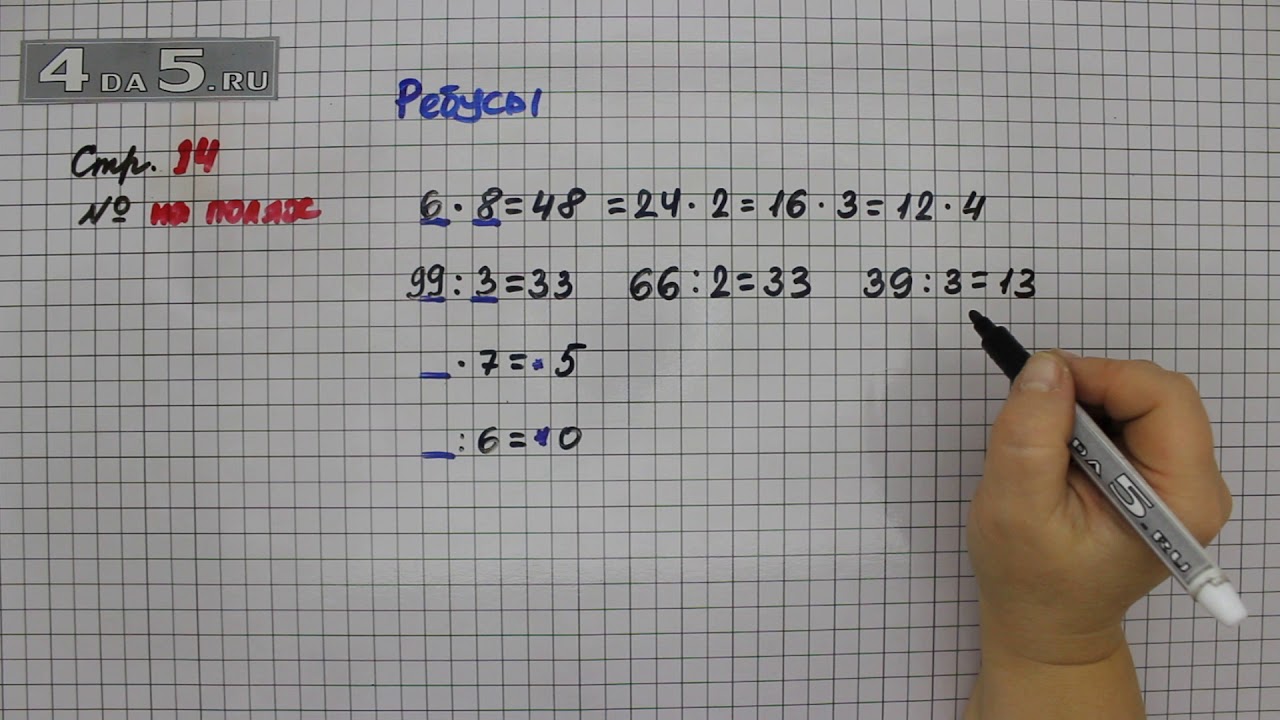 4 DA 5.RU
Ребусы
Стр. 14
№ на полях
6 · 8 = 48 = 24 · 2 = 16 · 3 = 12 · 4
99 : 3 = 33 66 : 2 = 33 39 : 3 = 13
_ · 7 = · 5
_ : 6 = · 0
DA 5.RU